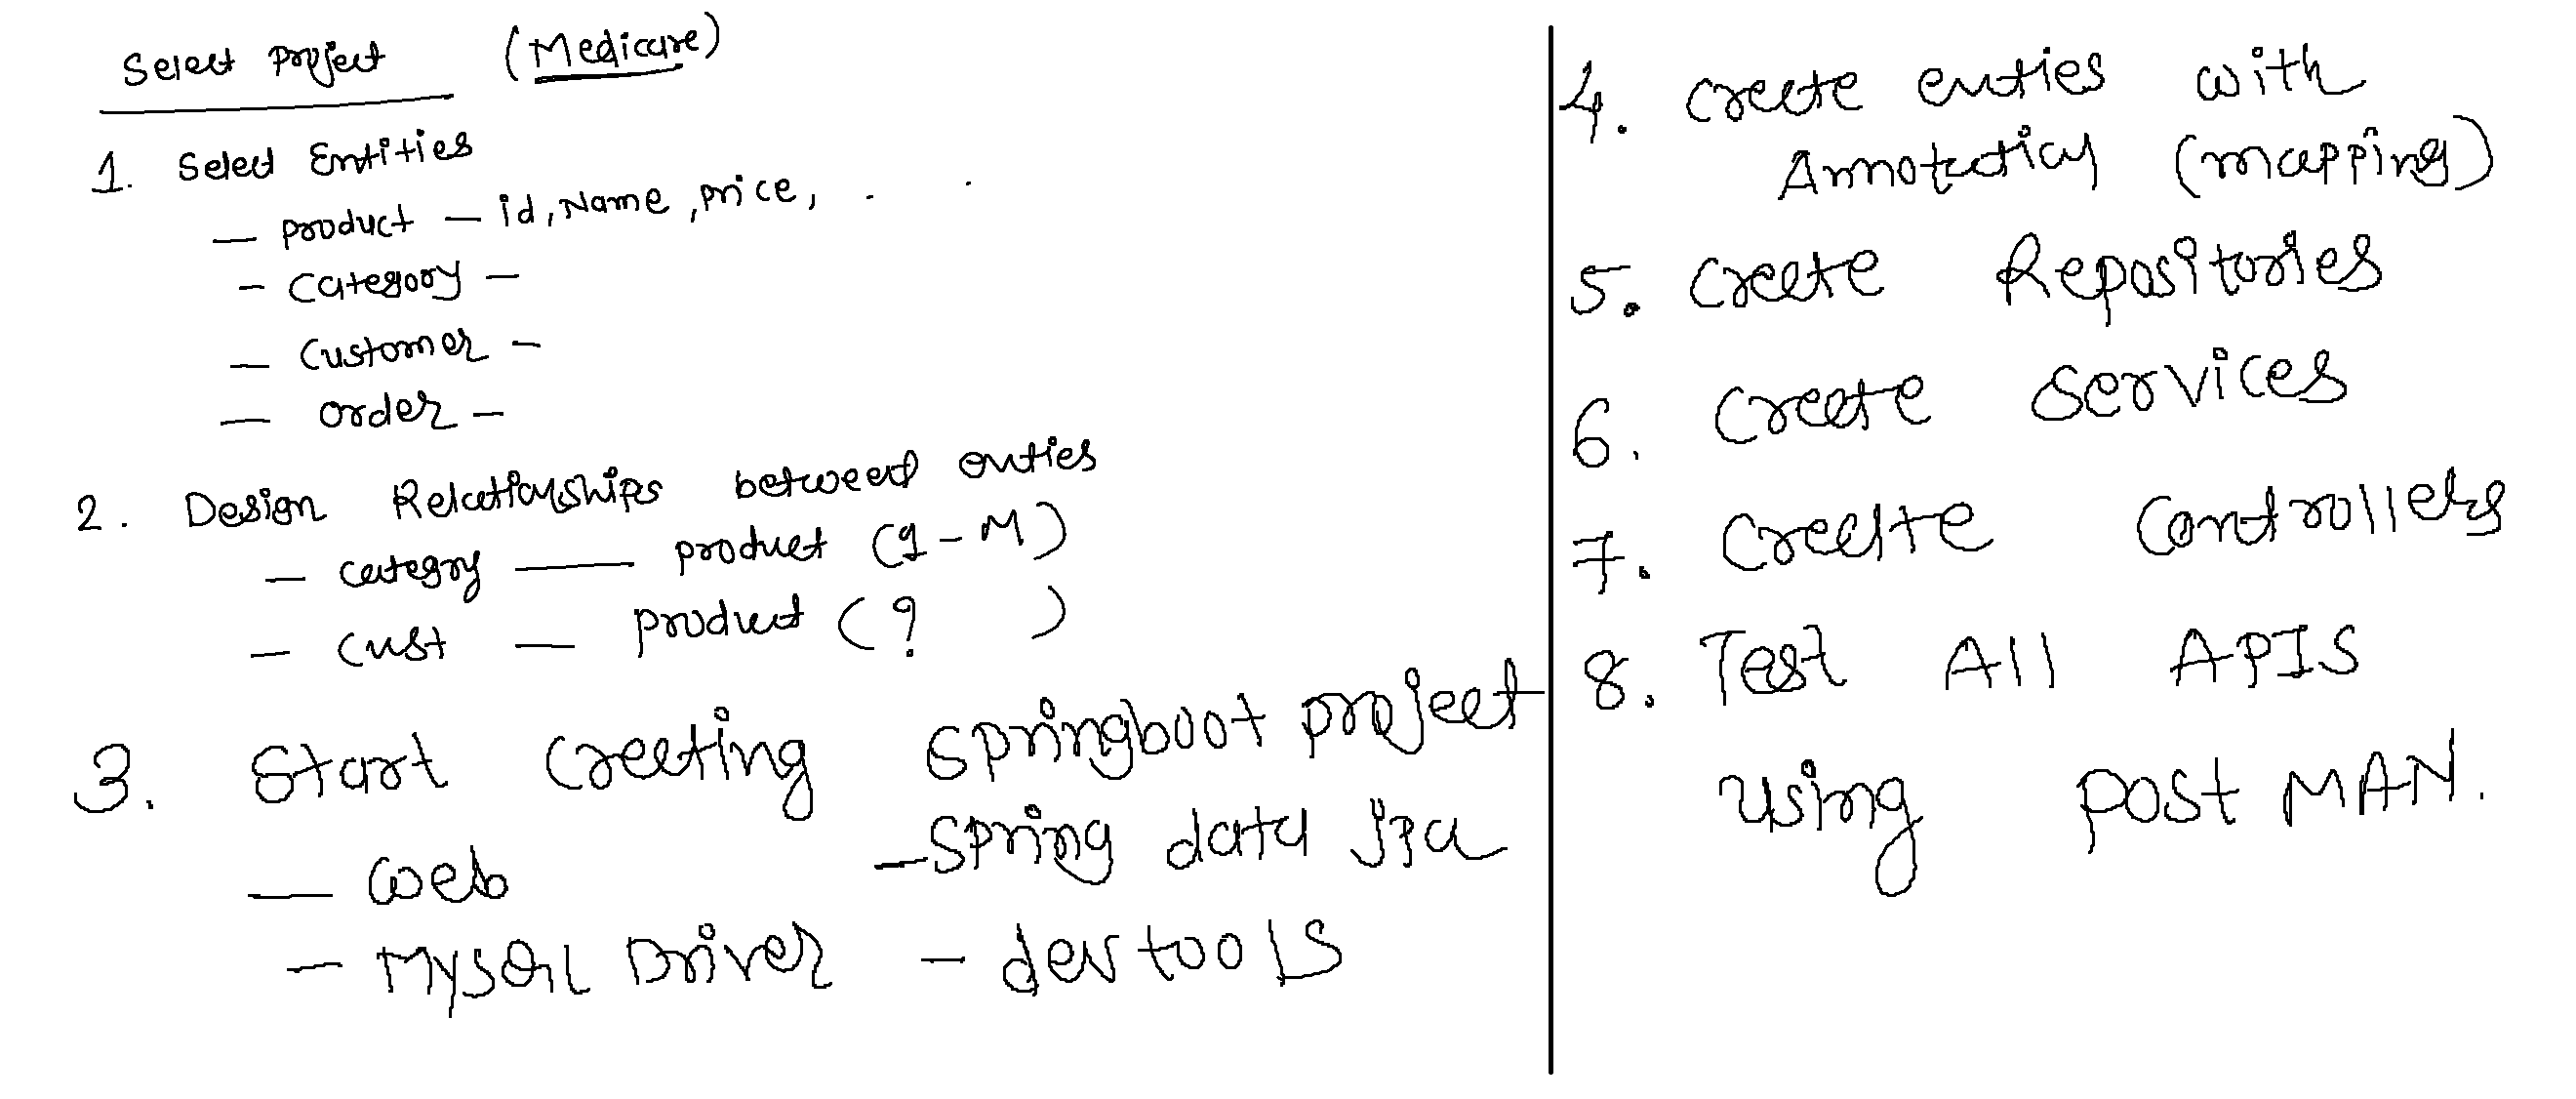 Select Project (Medicare)
1. Select Entities
— product — id, Name, price, . .
- Category —
— Customer —
— order —
2. Design Relationships between enties
— category —— product (1-M)
— cust — product (? )
3. Start creating springboot project
— web — spring data jpa
— MySQL Driver — devtools
4. create enties with
Annotation (mapping)
5. Create Repositories
6. Create Services
7. Create Controllers
8. Test All APIS
using post MAN.